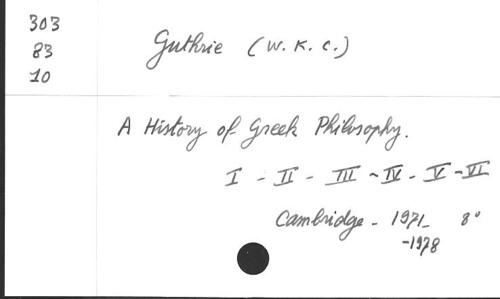 303
83
10
Guthrie (W. K. C.)
A History of Greek Philosophy.
I - II - III - IV - V - VI
Cambridge - 1971- 8°
-1978